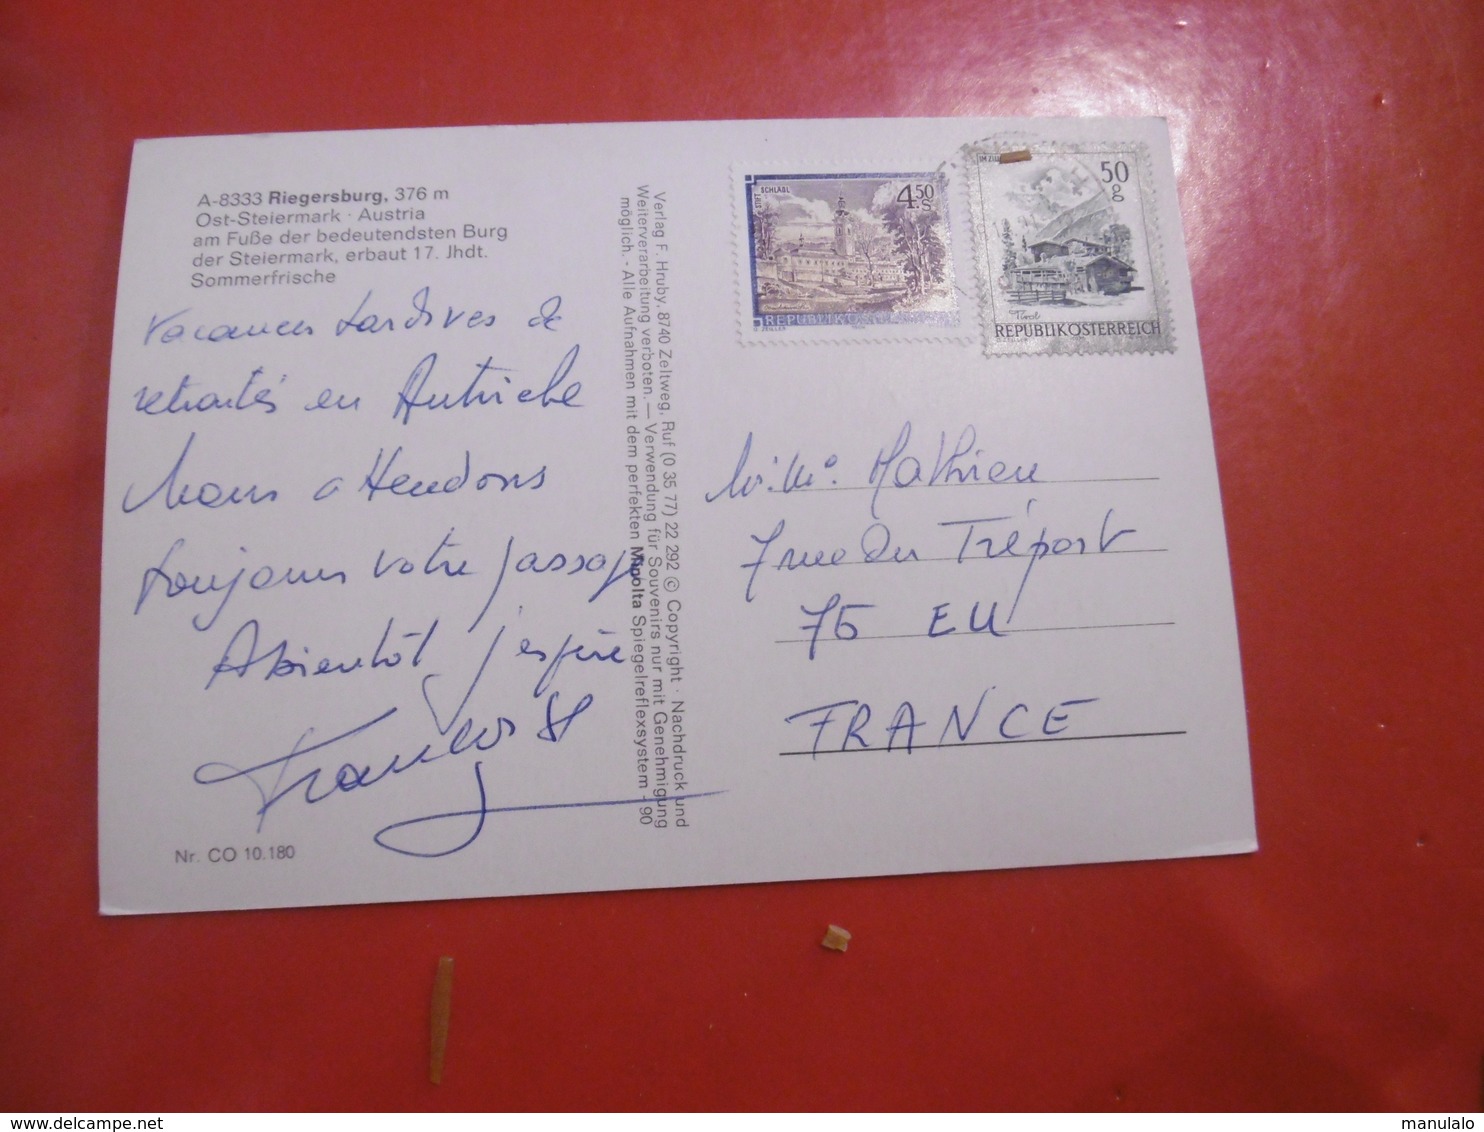 A-8333 Riegersburg, 376 m
Ost-Steiermark · Austria
am Fuße der bedeutendsten Burg
der Steiermark, erbaut 17. Jhdt.
Sommerfrische
Vacances tardives de
retraités en Autriche
Nous attendons
toujours votre passage
A bientôt j'espère
Nr. CO 10.180
Verlag F. Hruby, 8740 Zeltweg, Ruf (0 35 77) 22 292 © Copyright · Nachdruck und
Weiterverarbeitung verboten. — Verwendung für Souvenirs nur mit Genehmigung
möglich. - Alle Aufnahmen mit dem perfekten Minolta Spiegelreflexsystem - 90
STIFT SCHLÄGL
4.50 S
REPUBLIK
O. ZEILER
IM
50 g
Tirol
REPUBLIK ÖSTERREICH
Mathieu
7 rue du Tréport
76 EU
FRANCE
delcampe.net
manulalo